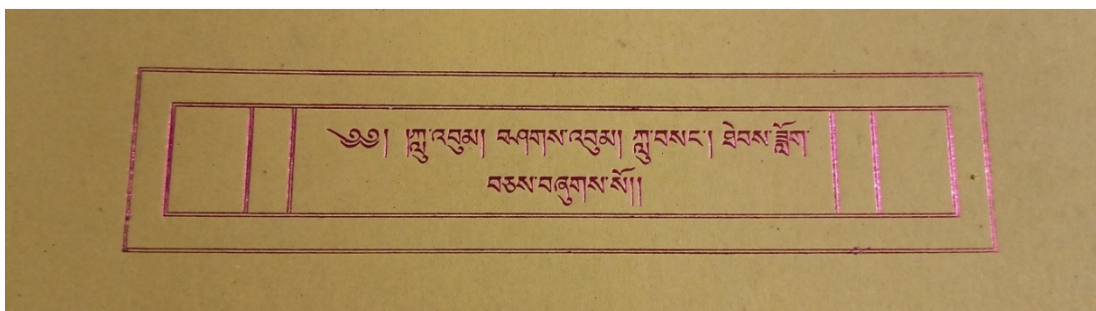 ༄༅། །ཀླུ་འབུམ། བཤགས་འབུམ། ཀླུ་བསང་། ཐེབས་ཟློག་
བཅས་བཞུགས་སོ།།